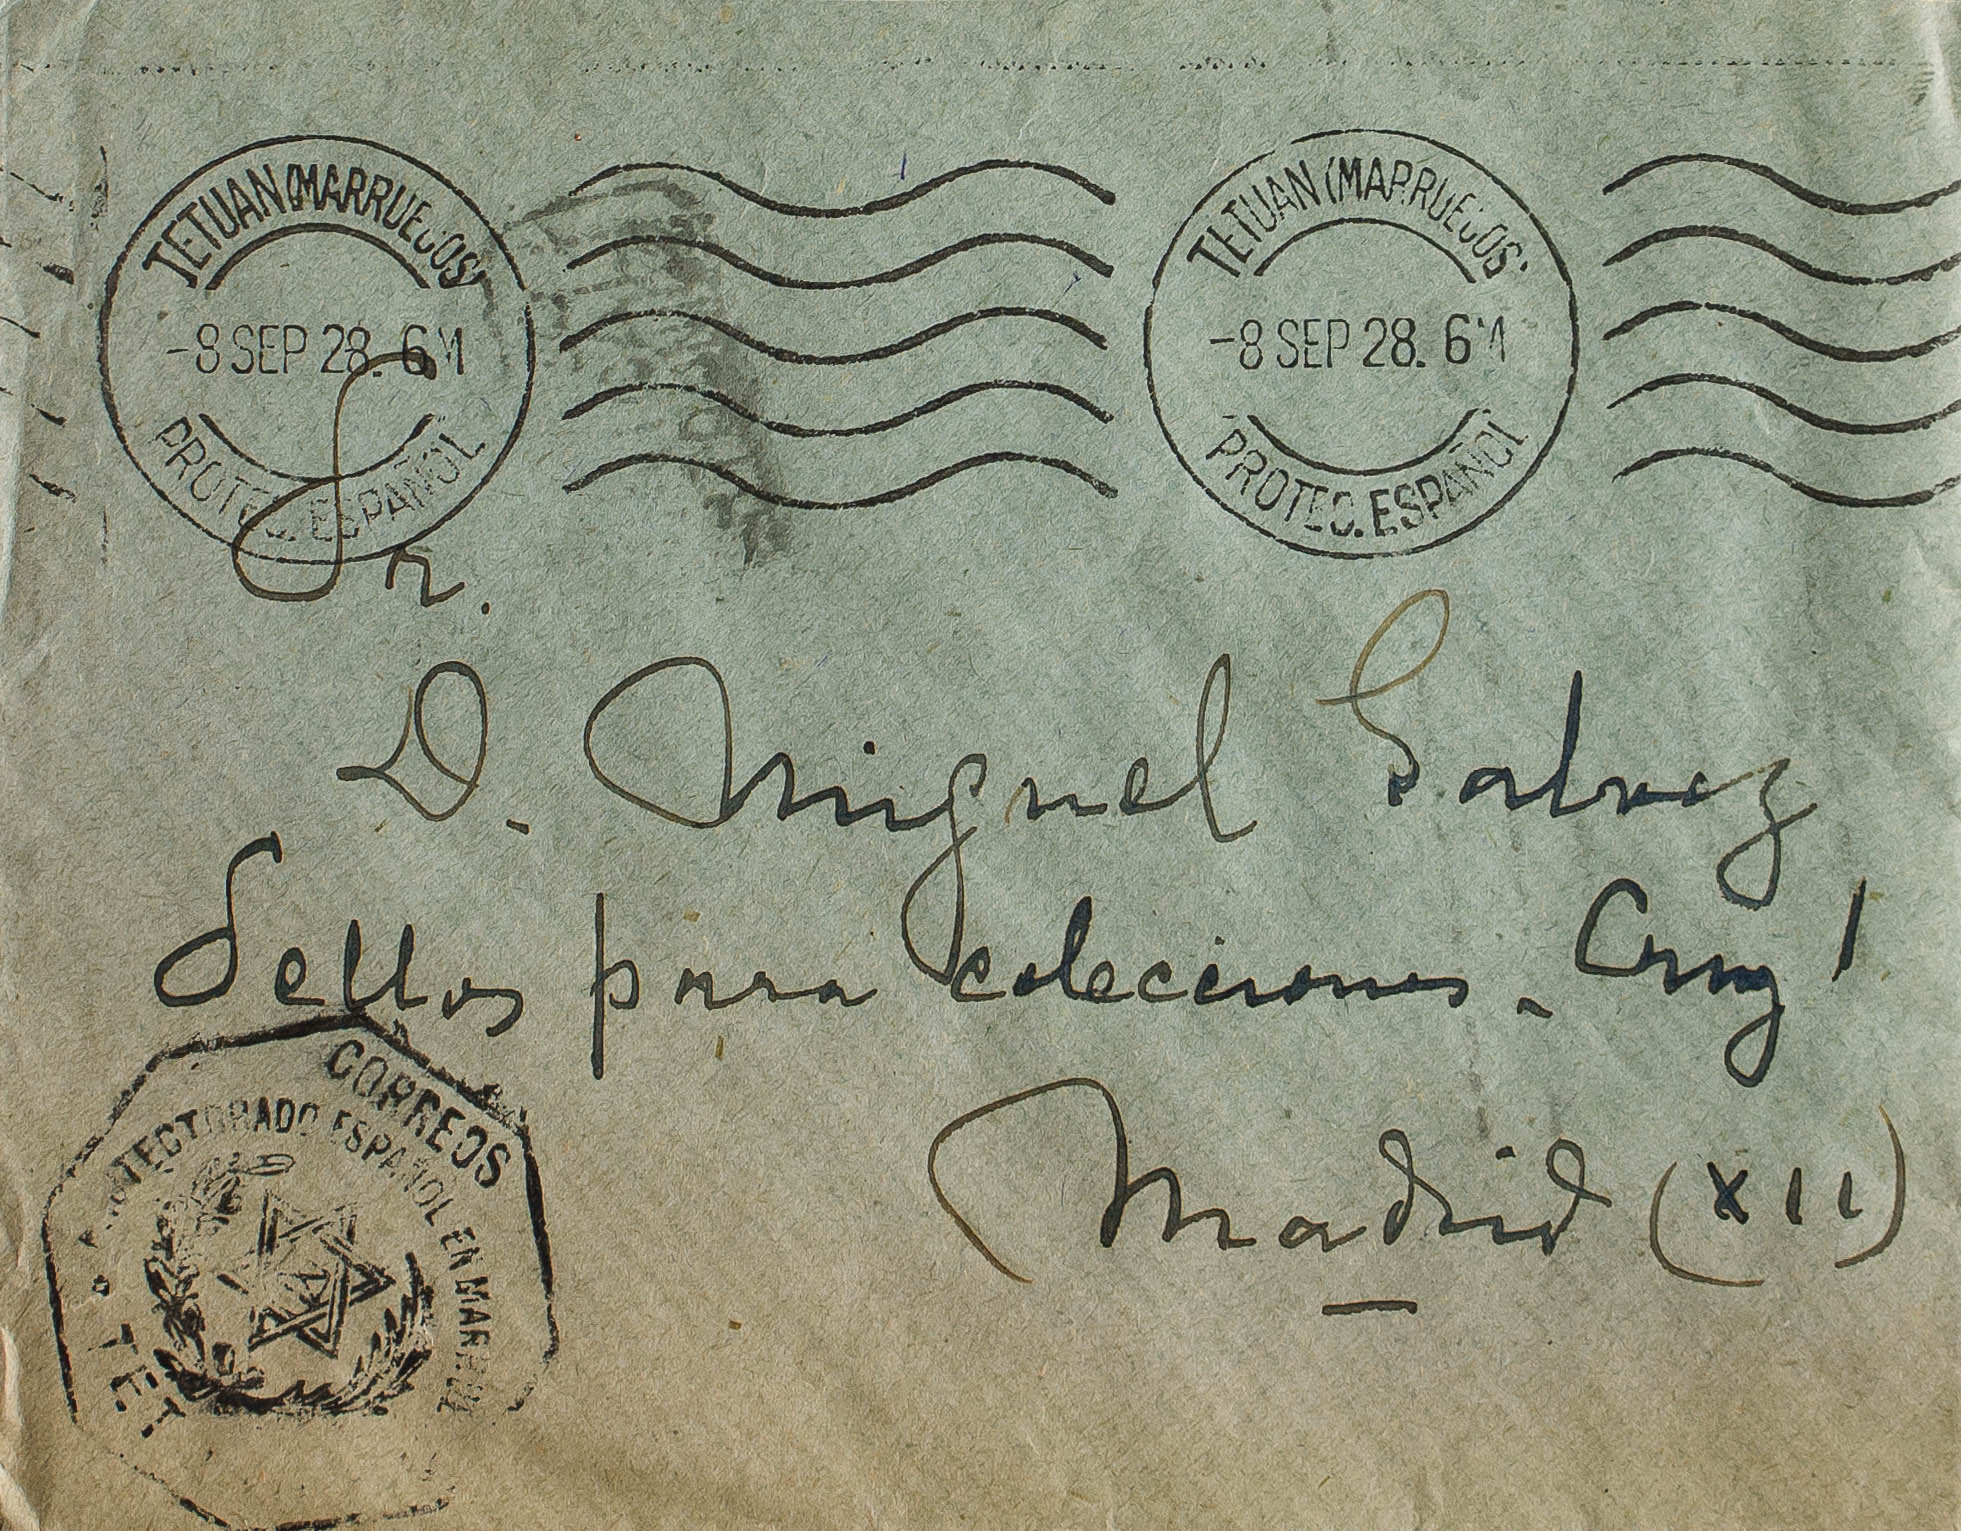 TETUAN (MARRUECOS)
-8 SEP 28. 6M
PROTEC. ESPAÑOL
TETUAN (MARRUECOS)
-8 SEP 28. 6M
PROTEC. ESPAÑOL
Sr.
D. Miguel Galvez
Sellos para colecciones. Cruz 1
Madrid (XII)
CORREOS
PROTECTORADO ESPAÑOL EN